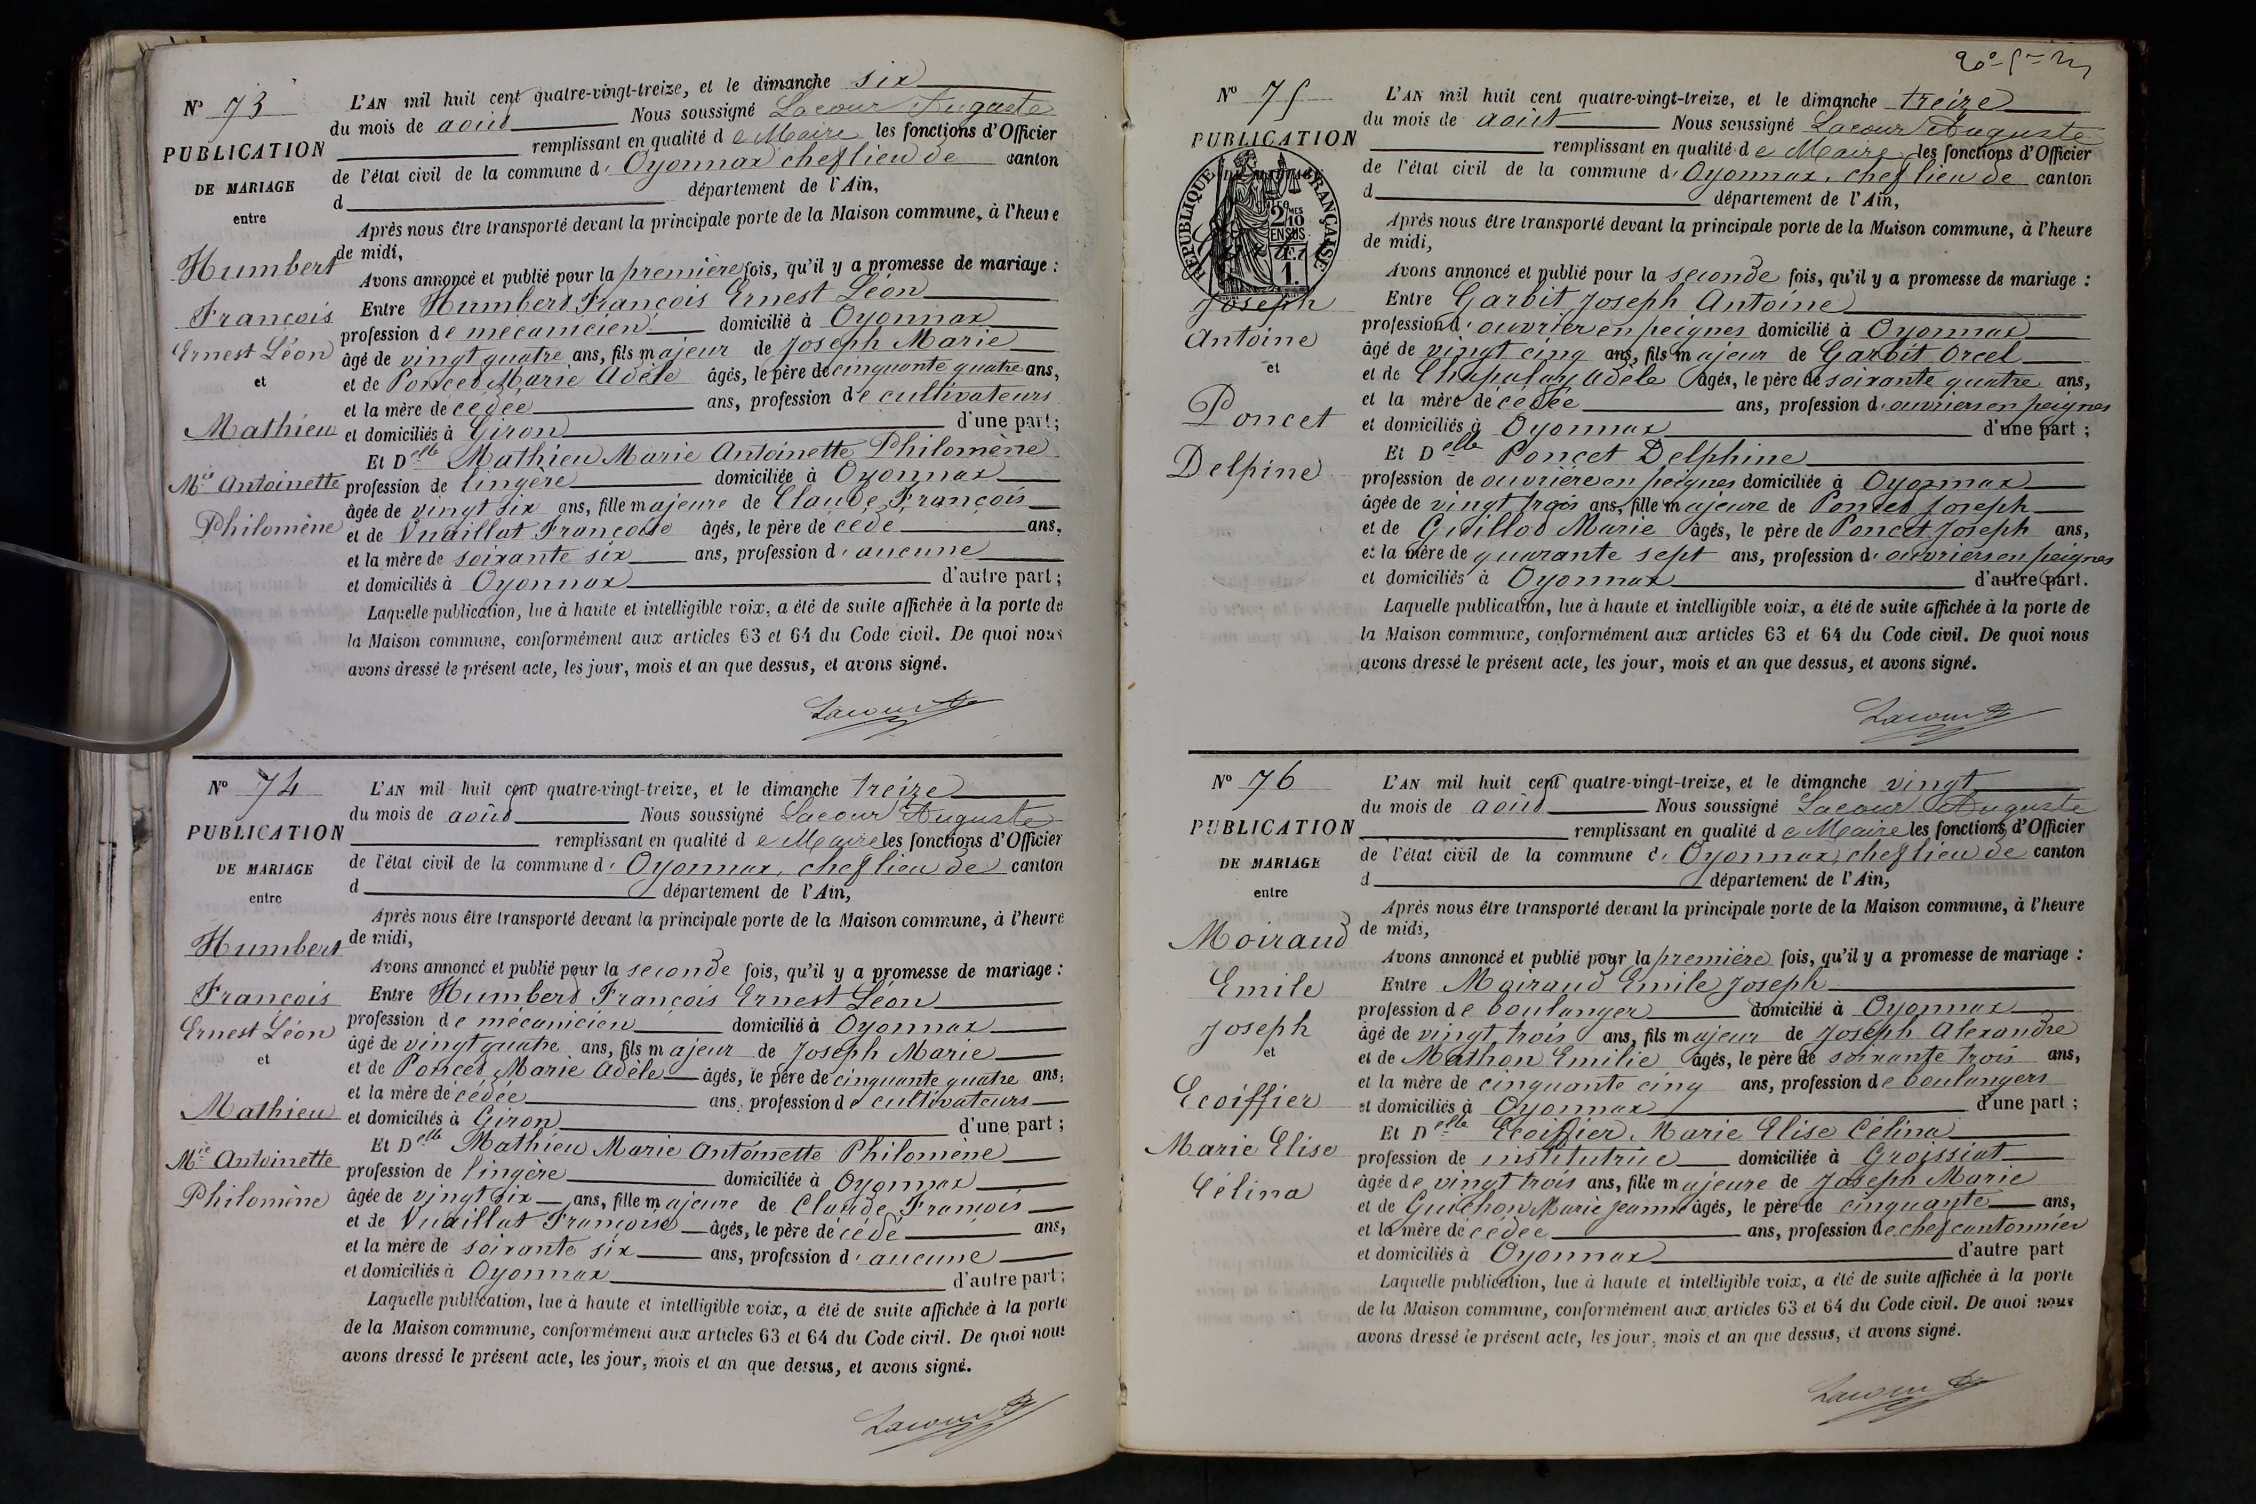 Nº 73
PUBLICATION
DE MARIAGE
entre
Humbert
François
Ernest Léon
et
Mathieu
Mie Antoinette
Philomène
L'AN mil huit cent quatre-vingt-treize, et le dimanche six
du mois de août Nous soussigné Lacour Auguste
remplissant en qualité de Maire les fonctions d'Officier
de l'état civil de la commune d' Oyonnax chef lieu de canton
d département de l'Ain,
Après nous être transporté devant la principale porte de la Maison commune, à l'heure
de midi,
Avons annoncé et publié pour la première fois, qu'il y a promesse de mariage :
Entre Humbert François Ernest Léon
profession de mecanicien domicilié à Oyonnax
âgé de vingt quatre ans, fils majeur de Joseph Marie
et de Poncet Marie Adèle âgés, le père de cinquante quatre ans,
et la mère décédée ans, profession de cultivateurs
et domiciliés à Giron d'une part ;
Et Delle Mathieu Marie Antoinette Philomène
profession de lingère domiciliée à Oyonnax
âgée de vingt six ans, fille majeure de Claude François
et de Vuaillat Françoise âgés, le père décédé ans,
et la mère de soixante six ans, profession d' aucune
et domiciliés à Oyonnax d'autre part ;
Laquelle publication, lue à haute et intelligible voix, a été de suite affichée à la porte de
la Maison commune, conformément aux articles 63 et 64 du Code civil. De quoi nous
avons dressé le présent acte, les jour, mois et an que dessus, et avons signé.
Lacour
Nº 74
PUBLICATION
DE MARIAGE
entre
Humbert
François
Ernest Léon
et
Mathieu
Mie Antoinette
Philomène
L'AN mil huit cent quatre-vingt-treize, et le dimanche treize
du mois de août Nous soussigné Lacour Auguste
remplissant en qualité de Maire les fonctions d'Officier
de l'état civil de la commune d' Oyonnax, chef lieu de canton
d département de l'Ain,
Après nous être transporté devant la principale porte de la Maison commune, à l'heure
de midi,
Avons annoncé et publié pour la seconde fois, qu'il y a promesse de mariage :
Entre Humbert François Ernest Léon
profession de mécanicien domicilié à Oyonnax
âgé de vingt quatre ans, fils majeur de Joseph Marie
et de Poncet Marie Adèle âgés, le père de cinquante quatre ans,
et la mère décédée ans, profession de cultivateurs
et domiciliés à Giron d'une part ;
Et Delle Mathieu Marie Antoinette Philomène
profession de lingère domiciliée à Oyonnax
âgée de vingt six ans, fille majeure de Claude François
et de Vuaillat Françoise âgés, le père décédé ans,
et la mère de soixante six ans, profession d' aucune
et domiciliés à Oyonnax d'autre part ;
Laquelle publication, lue à haute et intelligible voix, a été de suite affichée à la porte
de la Maison commune, conformément aux articles 63 et 64 du Code civil. De quoi nous
avons dressé le présent acte, les jour, mois et an que dessus, et avons signé.
Lacour
Nº 75
PUBLICATION
RÉPUBLIQUE FRANÇAISE
2/10 MES
EN SUS
1.
Joseph
Antoine
et
Poncet
Delpine
L'AN mil huit cent quatre-vingt-treize, et le dimanche treize
du mois de août Nous soussigné Lacour Auguste
remplissant en qualité de Maire les fonctions d'Officier
de l'état civil de la commune d' Oyonnax, chef lieu de canton
d département de l'Ain,
Après nous être transporté devant la principale porte de la Maison commune, à l'heure
de midi,
Avons annoncé et publié pour la seconde fois, qu'il y a promesse de mariage :
Entre Garbit Joseph Antoine
profession d' ouvrier en peignes domicilié à Oyonnax
âgé de vingt cinq ans, fils majeur de Garbit Orcel
et de Chapalay Adèle âgés, le père de soixante quatre ans,
et la mère décédée ans, profession d' ouvriers en peignes
et domiciliés à Oyonnax d'une part ;
Et Delle Poncet Delphine
profession de ouvrière en peignes domiciliée à Oyonnax
âgée de vingt trois ans, fille majeure de Poncet Joseph
et de Guillod Marie âgés, le père de Poncet Joseph ans,
et la mère de quarante sept ans, profession d' ouvriers en peignes
et domiciliés à Oyonnax d'autre part.
Laquelle publication, lue à haute et intelligible voix, a été de suite affichée à la porte de
la Maison commune, conformément aux articles 63 et 64 du Code civil. De quoi nous
avons dressé le présent acte, les jour, mois et an que dessus, et avons signé.
Lacour
Nº 76
PUBLICATION
DE MARIAGE
entre
Moiraud
Emile
Joseph
et
Ecoiffier
Marie Elise
Célina
L'AN mil huit cent quatre-vingt-treize, et le dimanche vingt
du mois de août Nous soussigné Lacour Auguste
remplissant en qualité de Maire les fonctions d'Officier
de l'état civil de la commune d' Oyonnax, chef lieu de canton
d département de l'Ain,
Après nous être transporté devant la principale porte de la Maison commune, à l'heure
de midi,
Avons annoncé et publié pour la première fois, qu'il y a promesse de mariage :
Entre Moiraud Emile Joseph
profession de boulanger domicilié à Oyonnax
âgé de vingt trois ans, fils majeur de Joseph Alexandre
et de Mathon Emilie âgés, le père de soixante trois ans,
et la mère de cinquante cinq ans, profession de boulangers
et domiciliés à Oyonnax d'une part ;
Et Delle Ecoiffier Marie Elise Célina
profession de institutrice domiciliée à Groissiat
âgée de vingt trois ans, fille majeure de Joseph Marie
et de Guichon Marie Jeanne âgés, le père de cinquante ans,
et la mère décédée ans, profession de chef cantonnier
et domiciliés à Oyonnax d'autre part
Laquelle publication, lue à haute et intelligible voix, a été de suite affichée à la porte
de la Maison commune, conformément aux articles 63 et 64 du Code civil. De quoi nous
avons dressé le présent acte, les jour, mois et an que dessus, et avons signé.
Lacour